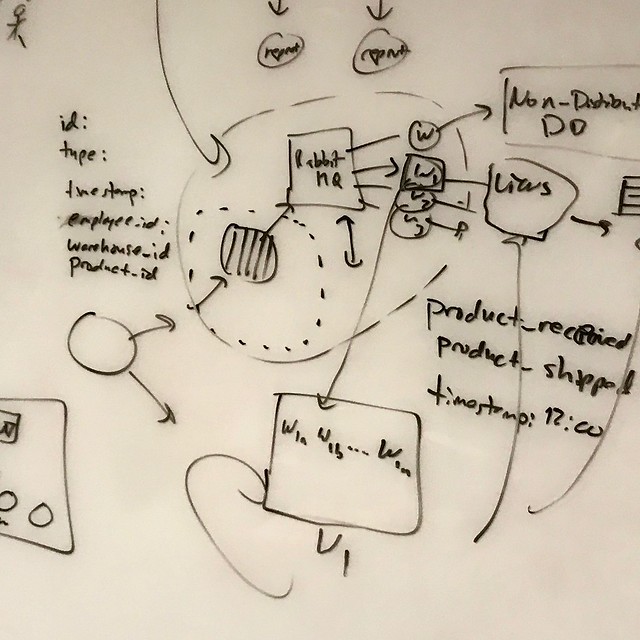 repeat
repeat
id:
type:
timestamp:
employee_id:
warehouse_id
product_id
Rabbit
MQ
W
W1
W2
W3
Non-Distribut
DD
product_received
product_shipped
timestamp: 12:00
W1a W1b ... W1n